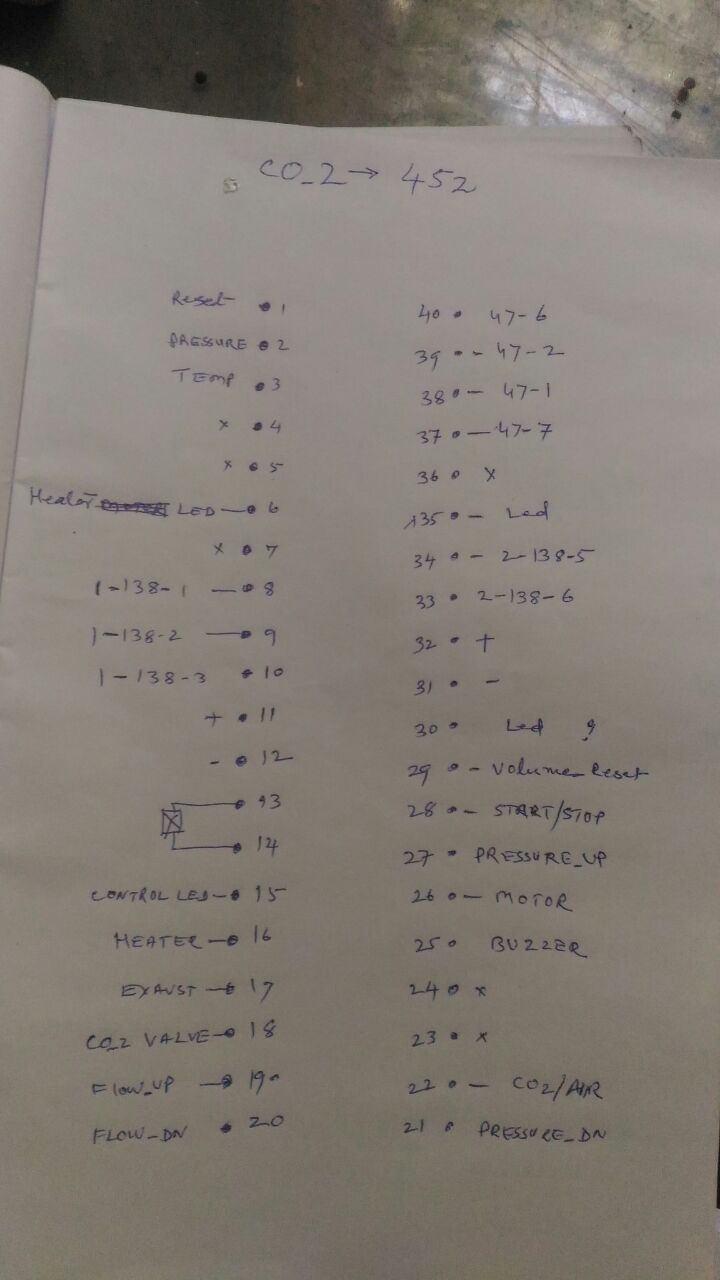 CO_2 → 452
Reset • 1
PRESSURE • 2
TEMP • 3
x • 4
x • 5
Heater LED — • 6
x • 7
1-138-1 — • 8
1-138-2 — • 9
1-138-3 • 10
+ • 11
- • 12
• 13
• 14
CONTROL LED — • 15
HEATER — • 16
EXAUST — • 17
CO_2 VALVE — • 18
FLOW_UP — • 19
FLOW_DN • 20
40 • 47-6
39 • - 47-2
38 • — 47-1
37 • — 47-7
36 • x
35 • — Led
34 • - 2-138-5
33 • 2-138-6
32 • +
31 • -
30 • Led
29 • - Volume_Reset
28 • — START/STOP
27 • PRESSURE_UP
26 • — MOTOR
25 • BUZZER
24 • x
23 • x
22 • — CO2/AIR
21 • PRESSURE_DN